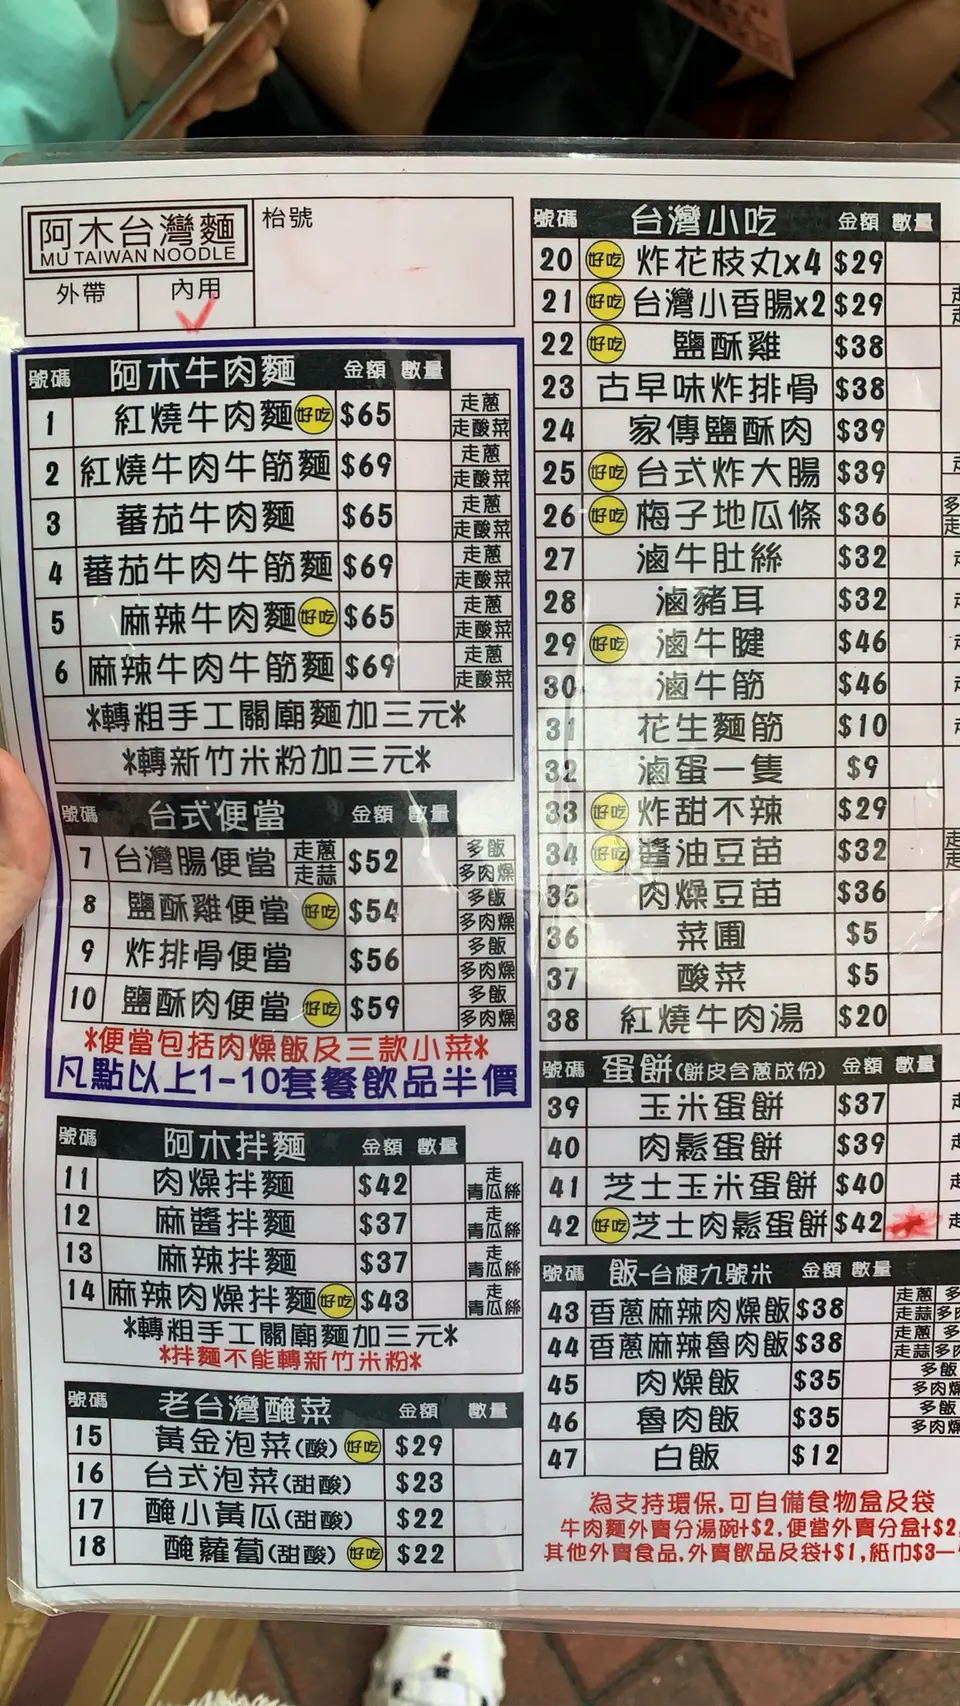 阿木台灣麵
MU TAIWAN NOODLE
枱號
外帶 內用
號碼 阿木牛肉麵 金額 數量
1 紅燒牛肉麵 好吃 $65 走蔥 走酸菜
2 紅燒牛肉牛筋麵 $69 走蔥 走酸菜
3 蕃茄牛肉麵 $65 走蔥 走酸菜
4 蕃茄牛肉牛筋麵 $69 走蔥 走酸菜
5 麻辣牛肉麵 好吃 $65 走蔥 走酸菜
6 麻辣牛肉牛筋麵 $69 走蔥 走酸菜
*轉粗手工關廟麵加三元*
*轉新竹米粉加三元*
號碼 台式便當 金額 數量
7 台灣腸便當 走蔥 走蒜 $52 多飯 多肉燥
8 鹽酥雞便當 好吃 $54 多飯 多肉燥
9 炸排骨便當 $56 多飯 多肉燥
10 鹽酥肉便當 好吃 $59 多飯 多肉燥
*便當包括肉燥飯及三款小菜*
凡點以上1-10套餐飲品半價
號碼 阿木拌麵 金額 數量
11 肉燥拌麵 $42 走青瓜絲
12 麻醬拌麵 $37 走青瓜絲
13 麻辣拌麵 $37 走青瓜絲
14 麻辣肉燥拌麵 好吃 $43 走青瓜絲
*轉粗手工關廟麵加三元*
*拌麵不能轉新竹米粉*
號碼 老台灣醃菜 金額 數量
15 黃金泡菜(酸) 好吃 $29
16 台式泡菜(甜酸) $23
17 醃小黃瓜(甜酸) $22
18 醃蘿蔔(甜酸) 好吃 $22
號碼 台灣小吃 金額 數量
20 好吃 炸花枝丸x4 $29
21 好吃 台灣小香腸x2 $29
22 好吃 鹽酥雞 $38
23 古早味炸排骨 $38
24 家傳鹽酥肉 $39
25 好吃 台式炸大腸 $39
26 好吃 梅子地瓜條 $36
27 滷牛肚絲 $32
28 滷豬耳 $32
29 好吃 滷牛腱 $46
30 滷牛筋 $46
31 花生麵筋 $10
32 滷蛋一隻 $9
33 好吃 炸甜不辣 $29
34 好吃 醬油豆苗 $32
35 肉燥豆苗 $36
36 菜圃 $5
37 酸菜 $5
38 紅燒牛肉湯 $20
號碼 蛋餅(餅皮含蔥成份) 金額 數量
39 玉米蛋餅 $37
40 肉鬆蛋餅 $39
41 芝士玉米蛋餅 $40
42 好吃 芝士肉鬆蛋餅 $42
號碼 飯-台梗九號米 金額 數量
43 香蔥麻辣肉燥飯 $38 走蔥 走蒜
44 香蔥麻辣魯肉飯 $38 走蔥 走蒜
45 肉燥飯 $35 多飯 多肉燥
46 魯肉飯 $35 多飯 多肉燥
47 白飯 $12
為支持環保.可自備食物盒及袋
牛肉麵外賣分湯碗+$2,便當外賣分盒+$2,
其他外賣食品.外賣飲品及袋+$1,紙巾$3一